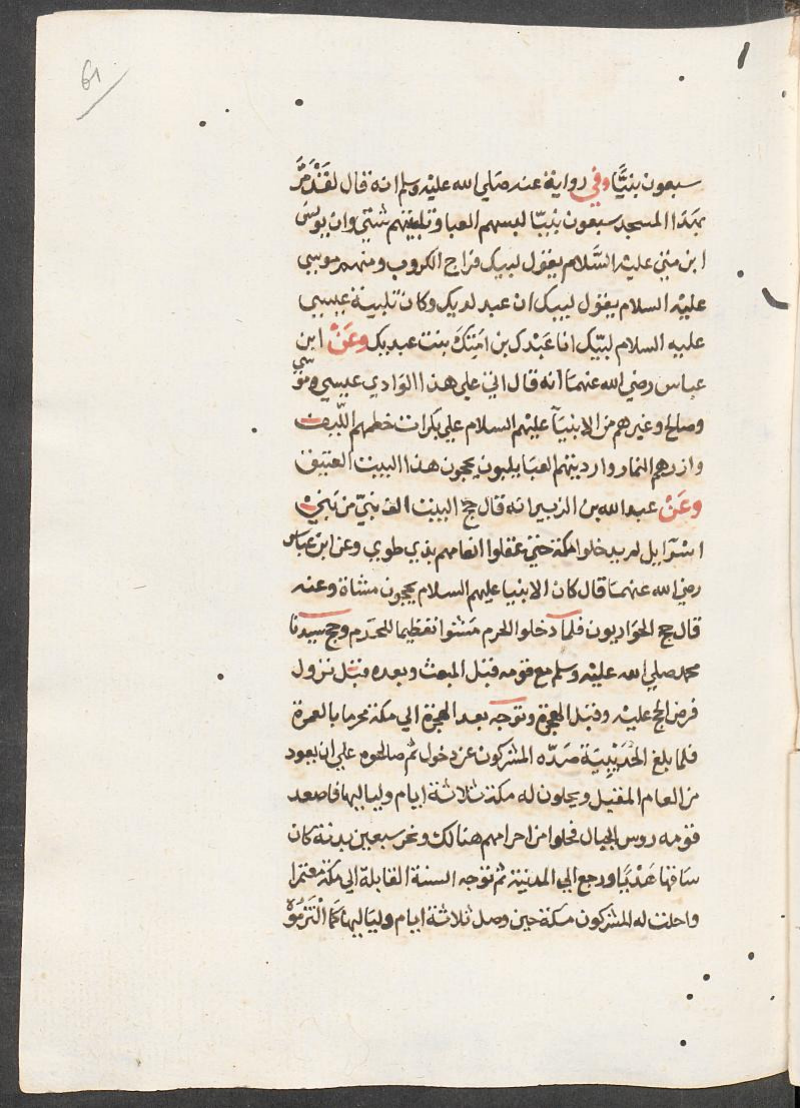 61
سبعون نبيًّا وفي رواية عنه صَلي الله عليه وسلم انه قال لقَدْ مَرَّ
بهَذا المسجد سبعون نبيّا لبسهم العبا وتلبيتهم شتي وان يونسَ
ابن متي عليه السَّلام يقول لبيك فراج الكروب ومنهم موسي
عليه السلام يقول لبيك ان عبد لديك وكان تلبية عيسي
عليه السلام لبّيك انا عَبْدك بن اَمَتِكَ بنت عبديك وعَنْ ابن
عباس رضي الله عنهمَا انه قال اتي علي هذا الوَادي عيسي وموسي
وصالح وغيرهم من الانبيَآ عليهم السلام علي بكرات خطمهم اللّيف
وازرهم النمار وارديتهم العبَا يلبون يحجون هذا البيت العتيق
وعَنْ عبد الله بن الزبير انه قال حج البيت الف نبيّ من بَني
اسرَآيل لم يدخلوا مكة حتي عقلوا انعامهم بذي طوي وعن ابن عباس
رضي الله عنهمَا قال كان الانبيا عليهم السلام يحجون مشاة وعنه
قال حج الحَوَاريون فلما دخلوا الحرم مَشوا تعظيما للحَرَم وحج سيدنا
محمد صلي الله عليه وسلم مع قومه قبل المبعث وبعده قبل نزول
فرض الحج عليه وقبل الهجرة وتوجه بعد الهجرة الي مكة محرما بالعمرة
فلما بلغ الحُدَيْبيَة صَدّه المشركون عن دخول ثم صالحوه علي ان يعود
من العام المقبل ويحلون له مكة ثلاثة ايام ولياليها فاصعد
قومه روس الجبال فحلوا من احرامهم هنالك ونحر سبعين بدنة كان
ساقها هَدْيًا ورجع الي المدينة ثم توجه السنة القابلة الي مكة معتمرا
واحلت له المشركون مكة حين وصل ثلاثة ايام ولياليها كَمَا الْتَزَمُوْهُ